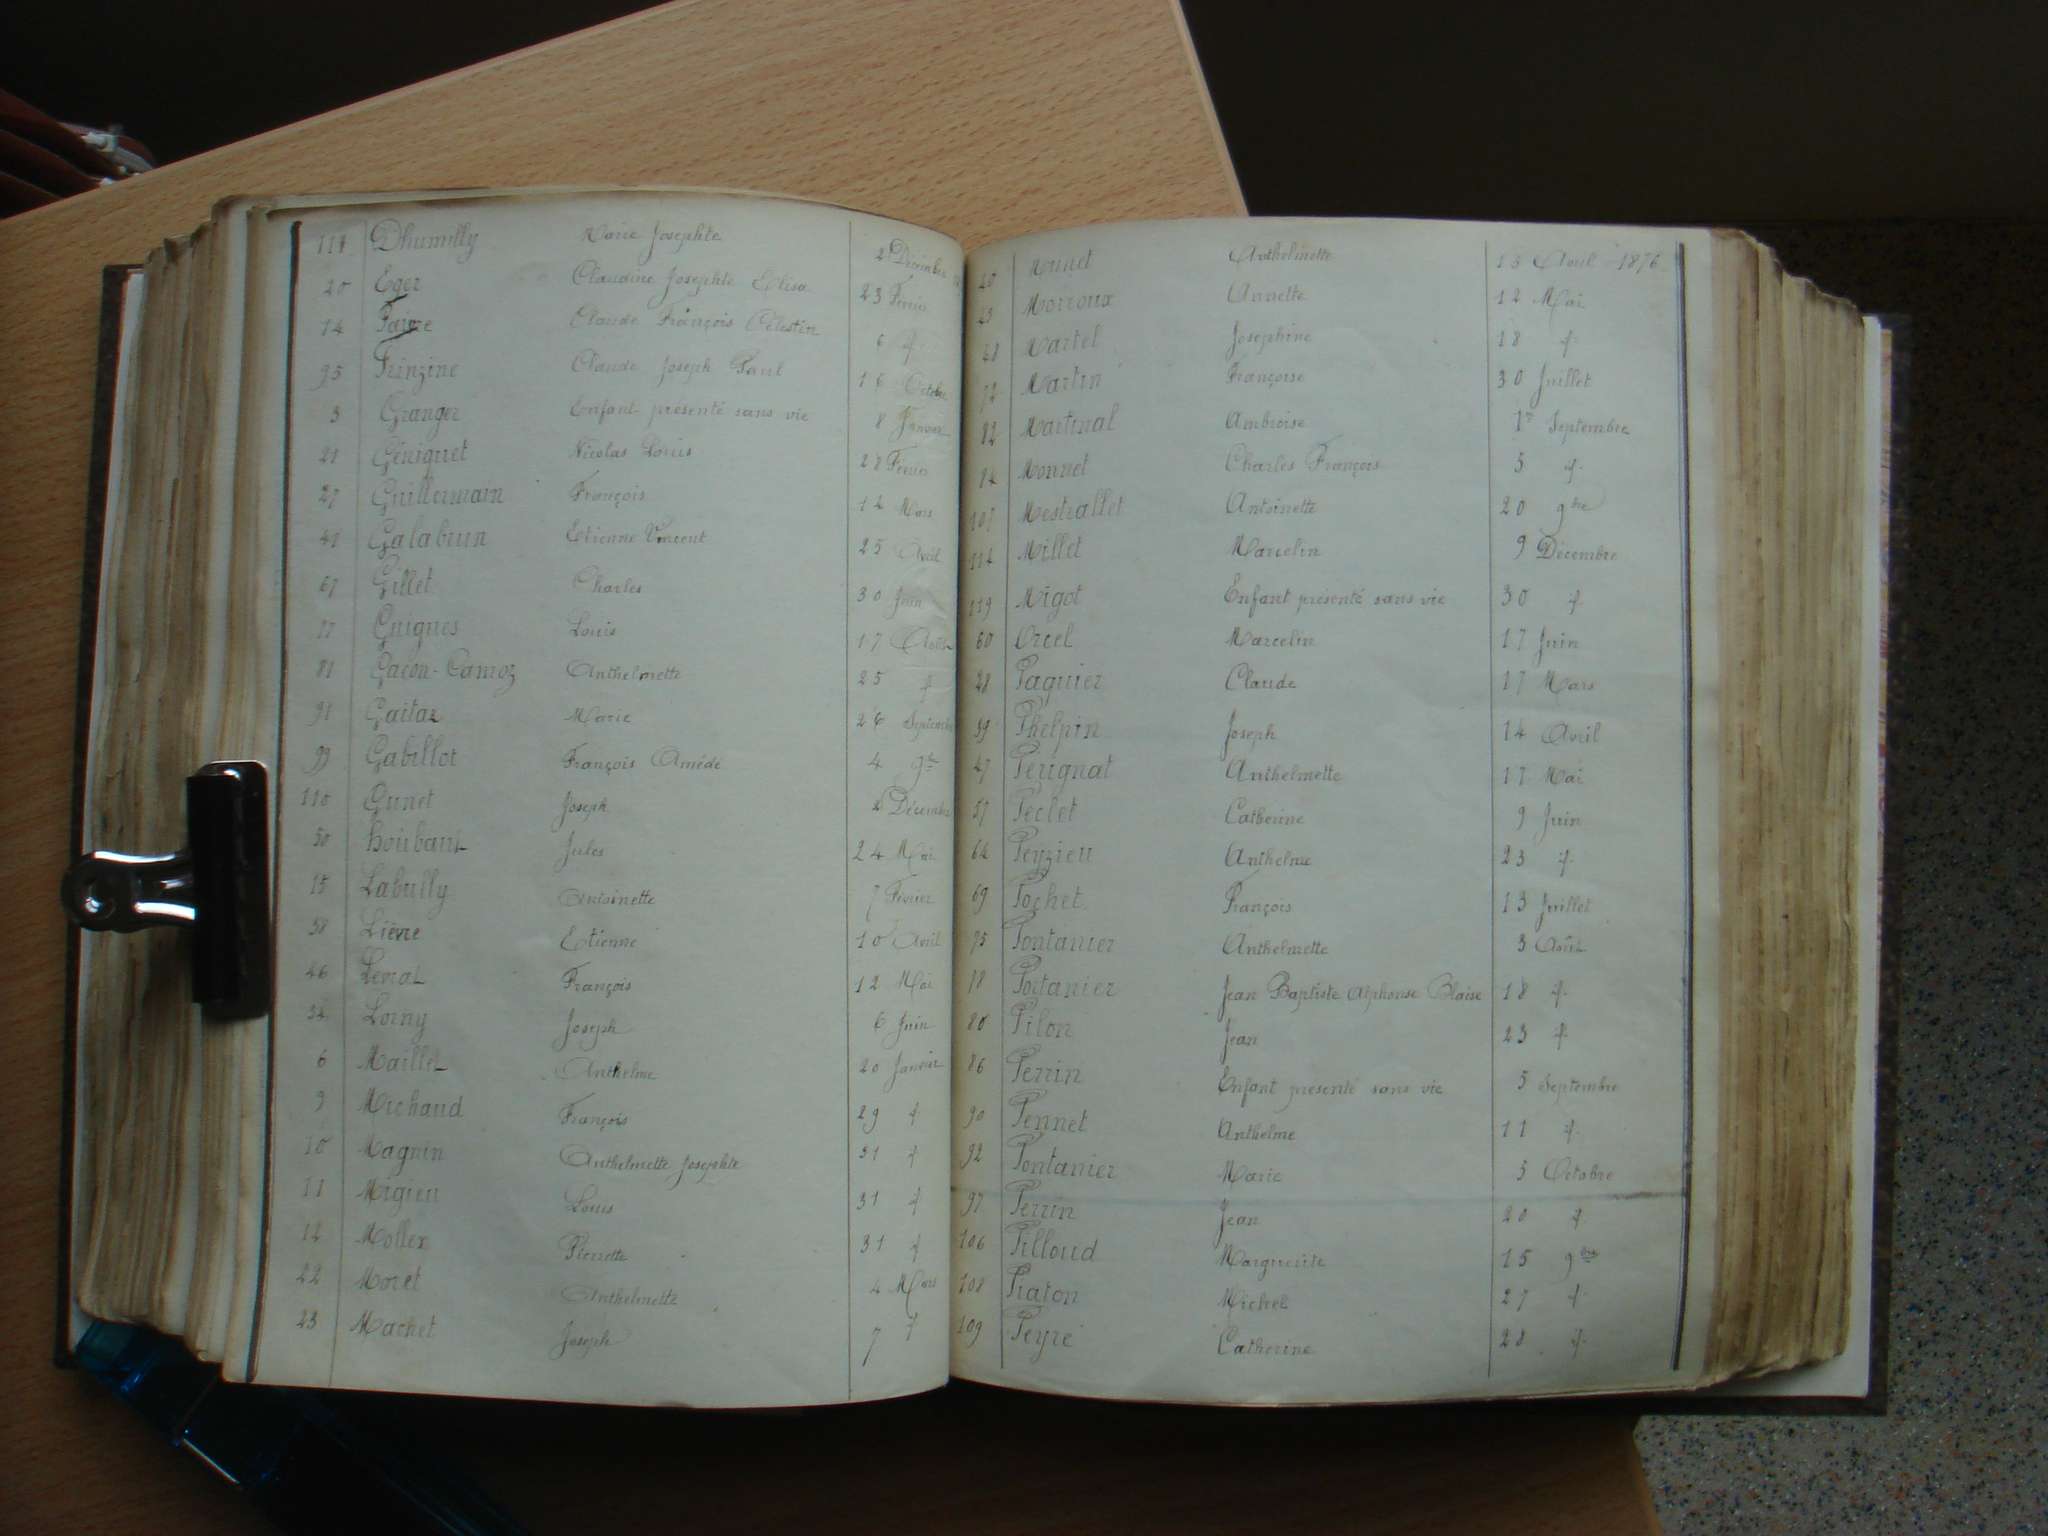 111 Dhumilly Marie Josephte 2 Décembre
20 Eger Claudine Josephte Elisa 23 Février
14 Favre Claude François Célestin 6 d°
95 Frinzine Claude Joseph Paul 16 Octobre
3 Granger Enfant présenté sans vie 8 Janvier
21 Géniquet Nicolas Louis 28 Février
27 Guillermain François 14 Mars
41 Galabrun Etienne Vincent 25 Avril
67 Gillet Charles 30 Juin
77 Guigues Louis 17 Août
81 Gacon-Camoz Anthelmette 25 d°
91 Gaitaz Marie 26 Septembre
99 Gabillot François Amédé 4 9bre
110 Gunet Joseph 2 Décembre
50 Houbaut Jules 24 Mai
15 Labully Antoinette 7 Février
38 Lièvre Etienne 10 Avril
46 Levrat François 12 Mai
54 Lorny Joseph 6 Juin
6 Maillet Anthelme 20 Janvier
9 Michaud François 29 d°
10 Magnin Anthelmette Josephte 31 d°
11 Migieu Louis 31 d°
12 Mollex Pierrette 31 d°
22 Moret Anthelmette 4 Mars
23 Machet Joseph 7 d°
40 Munet Anthelmette 13 Avril 1876
45 Morroux Annette 12 Mai
48 Martel Josephine 18 d°
72 Martin Françoise 30 Juillet
82 Martinal Ambroise 1er Septembre
84 Monnet Charles François 5 d°
107 Mestrallet Antoinette 20 9bre
114 Millet Marcelin 9 Décembre
119 Migot Enfant présenté sans vie 30 d°
60 Orcel Marcelin 17 Juin
28 Paquier Claude 17 Mars
39 Phelpin Joseph 14 Avril
47 Perignat Anthelmette 17 Mai
57 Peclet Catherine 9 Juin
64 Peyzieu Anthelme 23 d°
69 Pochet François 13 Juillet
75 Pontanier Anthelmette 3 Août
78 Pontanier Jean Baptiste Alphonse Blaise 18 d°
80 Pilon Jean 23 d°
86 Perrin Enfant présenté sans vie 5 Septembre
90 Pennet Anthelme 11 d°
92 Pontanier Marie 3 Octobre
97 Perrin Jean 20 d°
106 Pilloud Marguerite 15 9bre
108 Piaton Michel 27 d°
109 Peyre Catherine 28 d°